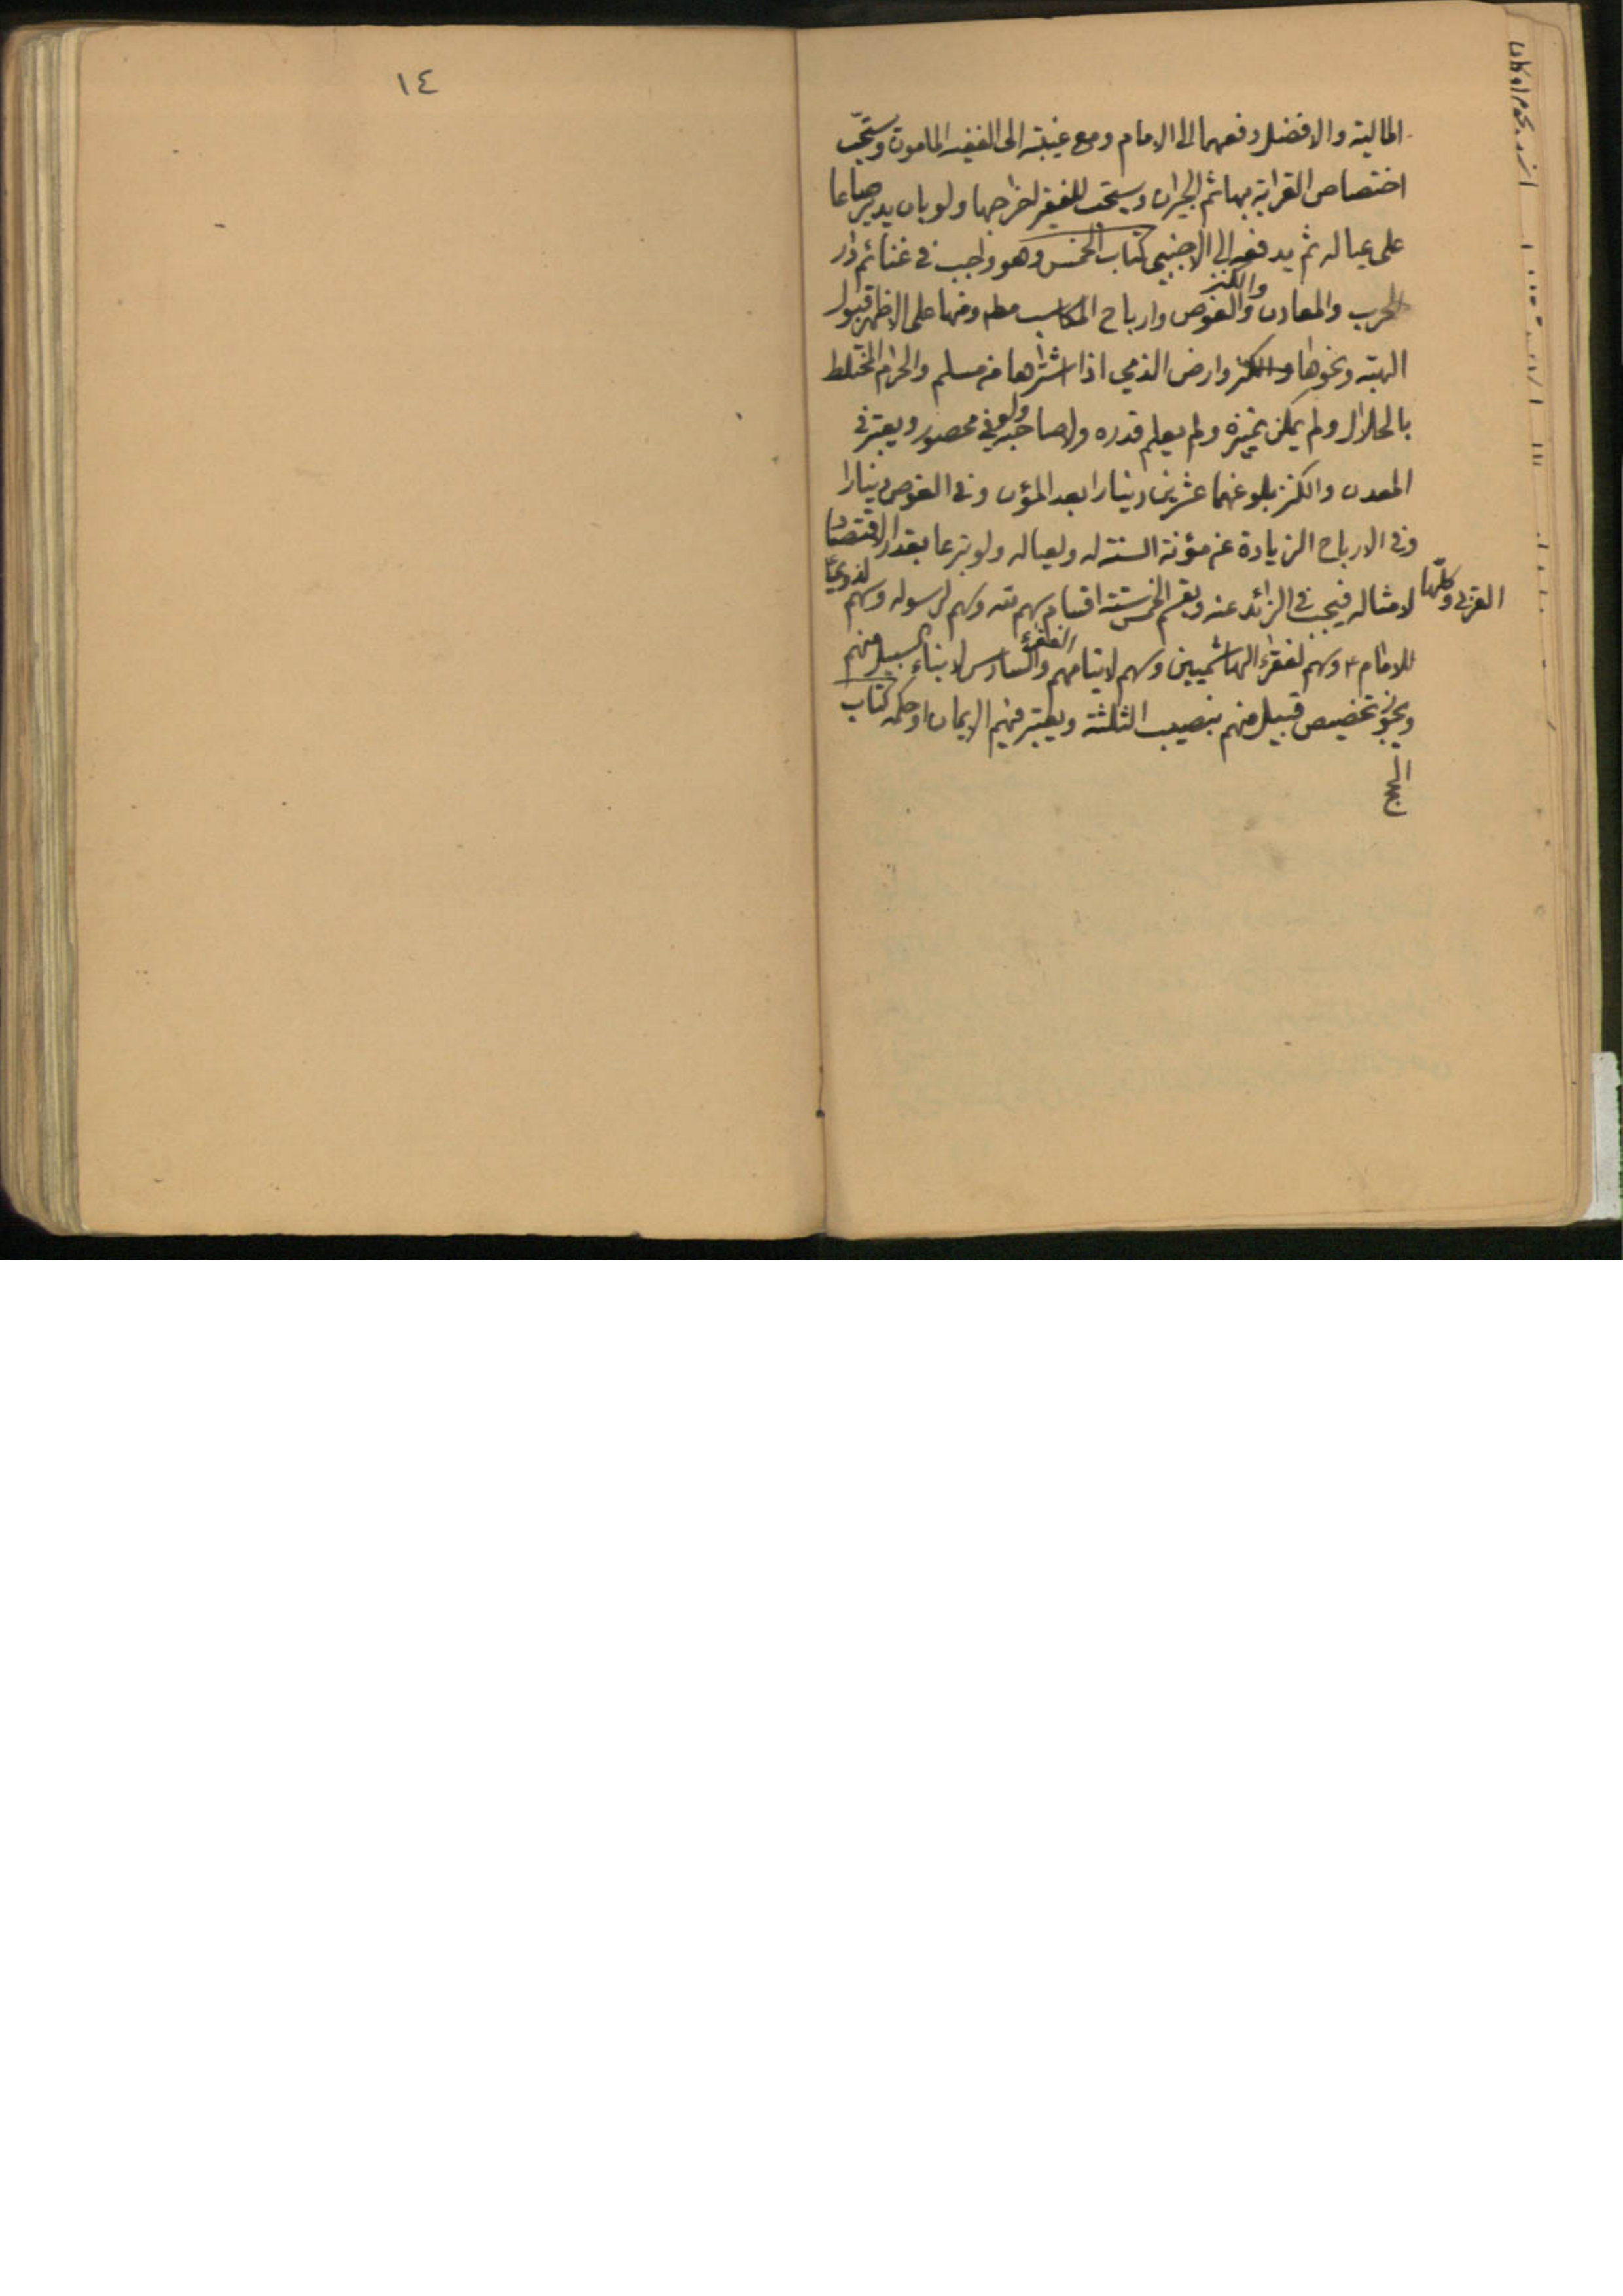 المالية والافضل دفعهما الى الامام ومع غيبته الى الفقيه المامون ويستحبّ
اختصاص القرابة بها ثم الجيران ويستحب للفقير اخراجها ولو بان يدير صاعا
على عياله ثم يدفعه الى الاجنبي كتاب الخمس وهو واجب في غنائم دار
الحرب والمعادن والغوص والكنز وارباح المكاسب مطم ومنها على الاظهر قبول
الهبة ونحوها والكنز وارض الذمي اذا اشتراها من مسلم والحرام المختلط
بالحلال ولم يمكن تميزه ولم يعلم قدره ولا صاحبه ولو في محصور ويعتبر في
المعدن والكنز بلوغهما عشرين دينارا بعد المؤن وفي الغوص دينارا
وفي الارباح الزيادة عن مؤنة السنة له ولعياله ولو تبرعا بقدر الاقتصاد
لامثاله فيجب في الزائد عنه ويقسم الخمس ستة اقسام سهم لله وسهم لرسوله وسهم لذوي
القربى وكلها
للامام ع وسهم لفقراء الهاشميين وسهم لايتامهم الفقراء والسادس لابناء السبيل منهم
ويجوز تخصيص قبيل منهم بنصيب الثلثة ويعتبر فيهم الايمان او حكمه كتاب
الحج
١٤